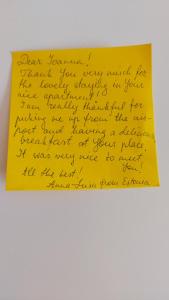 Dear Joanna!
Thank you very much for
the lovely staying in your
nice apartment!
I am really thankful for
picking me up from the air-
port and having a delicious
breakfast at your place.
It was very nice to meet
you!
All the best!
Anna-Liisa from Estonia